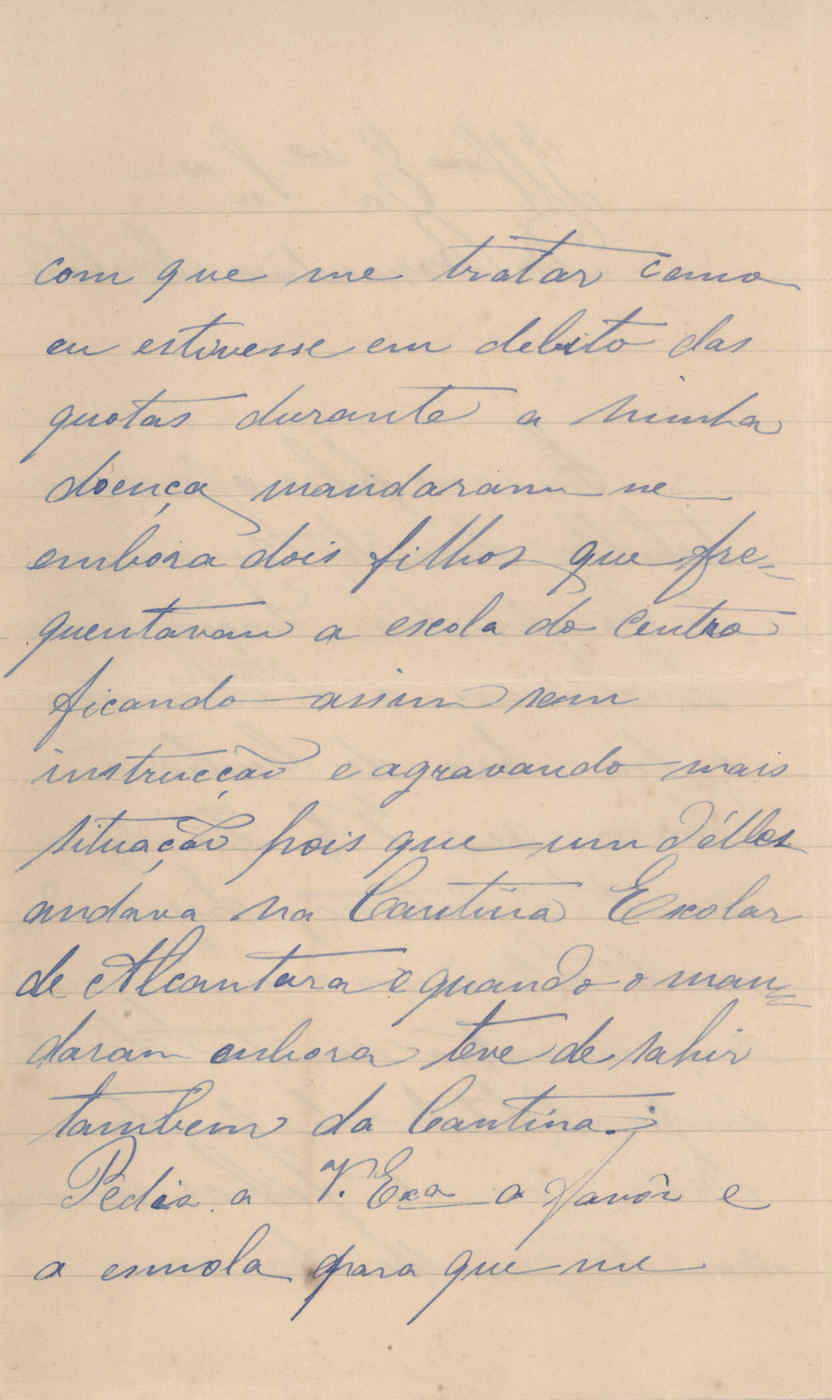 com que me tratar como
eu estivesse em debito das
quotas durante a minha
doença mandaram me
embora dois filhos que fre-
quentavam a escola do Centro
ficando assim sem
instrucção e agravando mais
situação pois que um délles
andava na Cantina Escolar
de Alcantara e quando o man=
daram embora teve de sahir
tambem da Cantina.
Pedia a V. Exa o favôr e
a esmola para que me